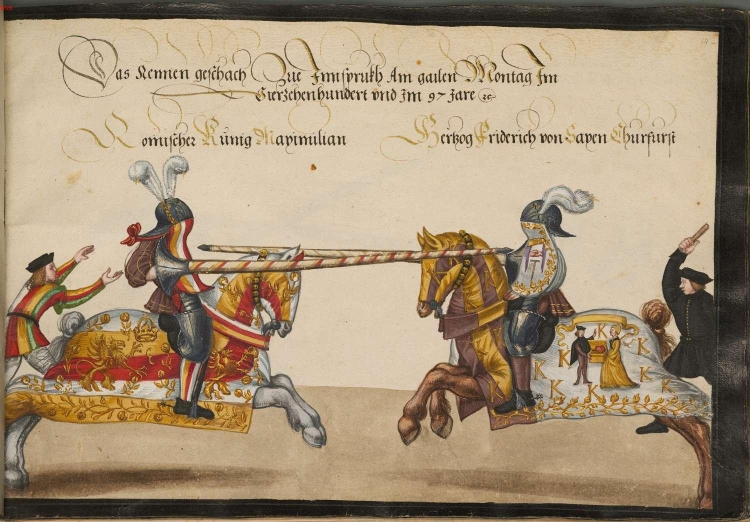 Das Rennen geschach Zue Innsprukh Am gailen Montag Im
Vierzehenhundert vnd Im 97 Jare
Romischer Künig Maximilian
Hertzog Friderich von Saxen Churfürst
K K K K K K K K